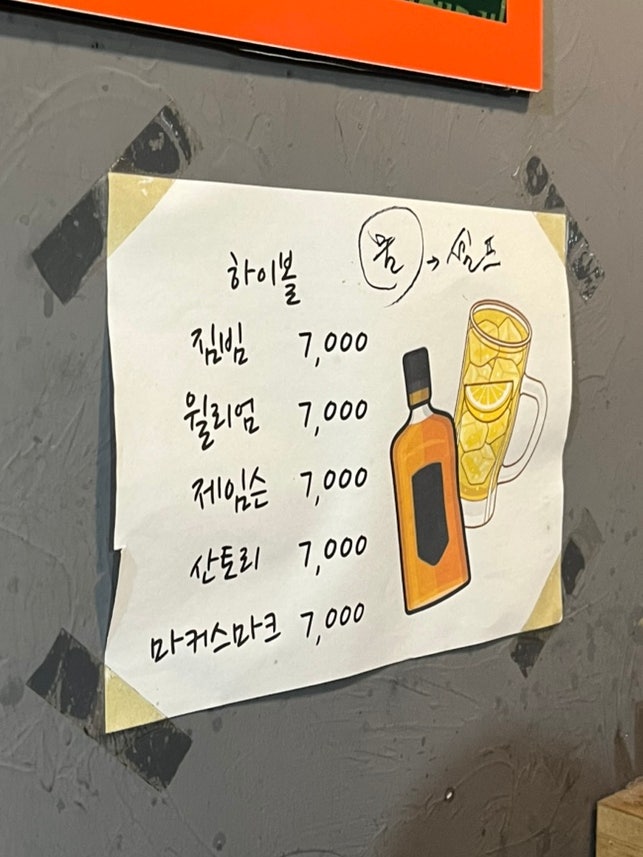 물 → 셀프
하이볼
짐빔 7,000
윌리엄 7,000
제임슨 7,000
산토리 7,000
마커스마크 7,000